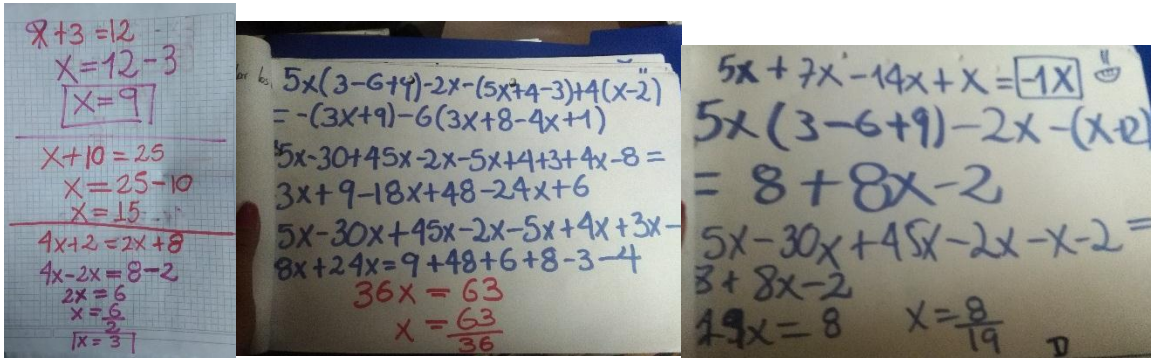 x+3=12
x=12-3
x=9
x+10=25
x=25-10
x=15
4x+2=2x+8
4x-2x=8-2
2x=6
x=6/2
x=3
5x(3-6+9)-2x-(5x+4-3)+4(x-2)
=-(3x+9)-6(3x+8-4x+1)
5x-30+45x-2x-5x+4+3+4x-8=
3x+9-18x+48-24x+6
5x-30x+45x-2x-5x+4x+3x-
8x+24x=9+48+6+8-3-4
36x=63
x=63/36
5x+7x-14x+x=-1x
5x(3-6+9)-2x-(x+2)
=8+8x-2
5x-30x+45x-2x-x-2=
8+8x-2
19x=8 x=8/19